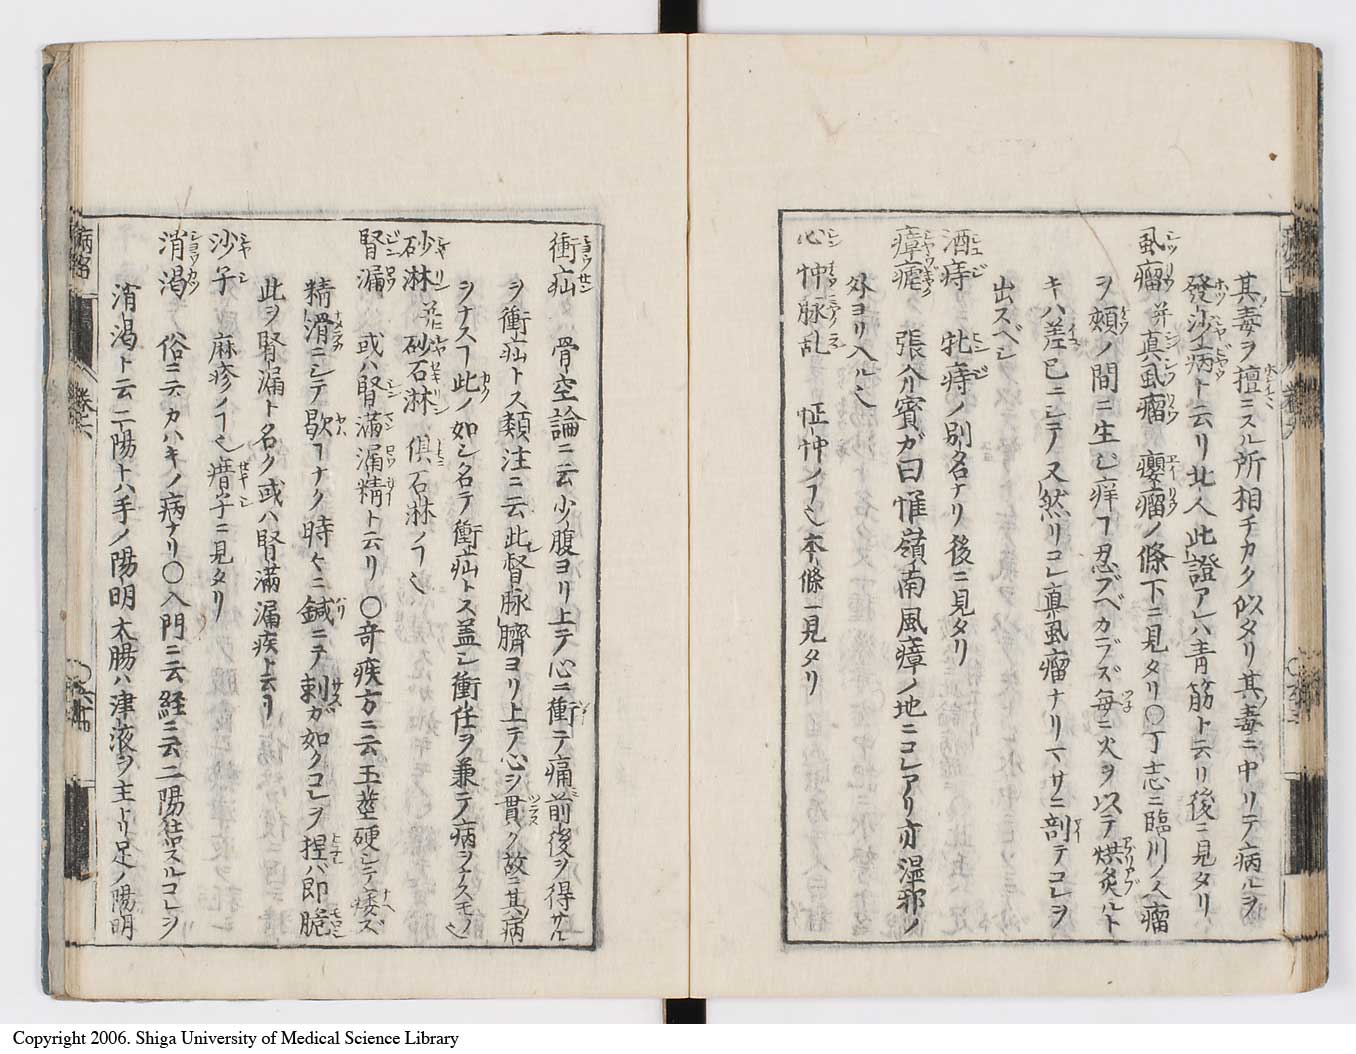 其毒ヲ擅ニスル所相チカク似タリ其毒ニ中リテ病ルヲ
發沙病ト云リ北人此證アレハ青筋ト云リ後ニ見タリ
虱瘤 并真虱瘤 癭瘤ノ條下ニ見タリ〇丁志ニ臨川ノ人瘤
ヲ頰ノ間ニ生ム痒フ忍ブベカラズ毎ニ火ヲ以テ烘炙ルト
キハ差已ニシテ又然リコレ真虱瘤ナリマサニ剖テコレヲ
出スベシ
酒痔 牝痔ノ別名ナリ後ニ見タリ
瘴瘧 張介賓ガ曰惟嶺南風瘴ノ地ニコレアリ亦濕邪ノ
外ヨリ入ル也
心忡脉乱 怔忡ノ也本條見タリ
衝疝 骨空論ニ云少腹ヨリ上テ心ニ衝テ痛前後ヲ得サル
ヲ衝疝トス類注ニ云此督脉臍ヨリ上テ心ヲ貫ク故ニ其病
ヲナスフ此ノ如シ名テ衝疝トス盖シ衝任ヲ兼テノ病ヲナスモノ也
砂淋 并砂石淋 倶石淋ノフ也
腎漏 或ハ腎滿漏精ト云リ〇竒疾方ニ云玉莖硬シテ痿ズ
精滑ニシテ歇フナク時々ニ鍼ニテ刺ガ如クコレヲ捏バ即脆
此ヲ腎漏ト名ク或ハ腎滿漏疾ト云リ
沙子 麻疹ノフ也瘄子ニ見タリ
消渇 俗ニ云カハキノ病ナリ〇入門ニ云経ニ云二陽結スルコレヲ
消渇ト云二陽トハ手ノ陽明大腸ハ津液ヲ主トリ足ノ陽明
病名
巻六
Copyright 2006. Shiga University of Medical Science Library